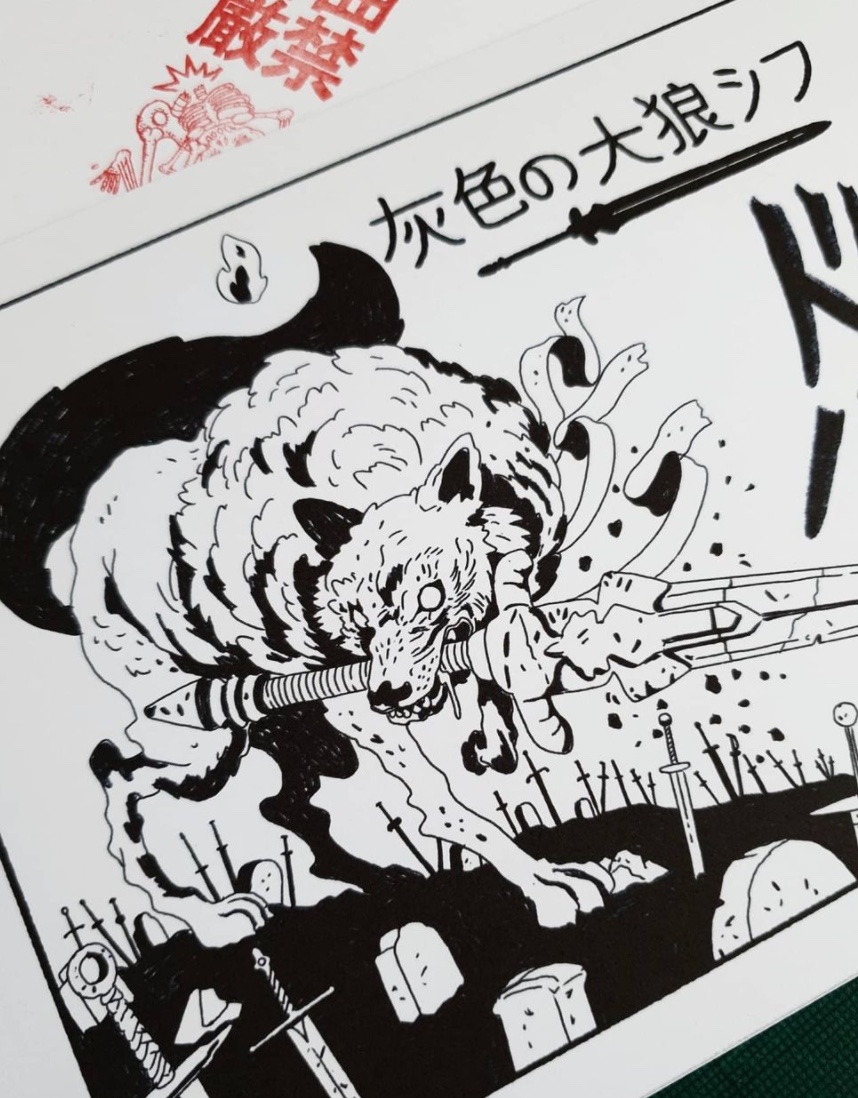 厳禁
灰色の大狼シフ
ドー